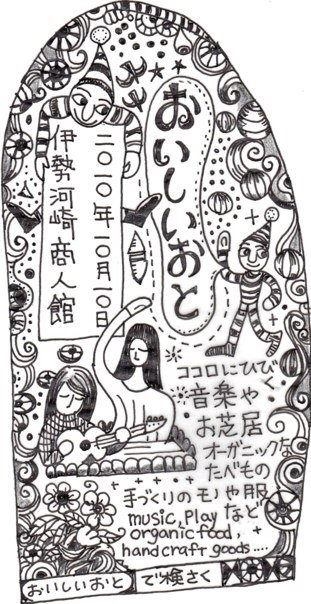 おいしいおと
二〇一〇年一〇月一〇日
伊勢河崎商人館
ココロにひびく
音楽や
お芝居
オーガニックな
たべもの
手づくりのモノや服
など
music, Play
organic food,
handcraft goods ....
おいしいおと で検さく